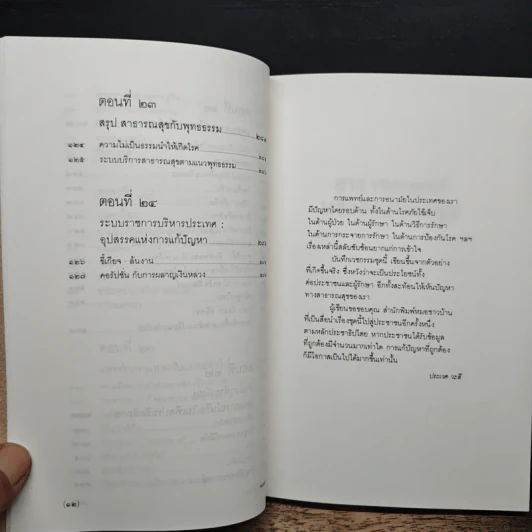 ตอนที่ ๒๓
สรุป สาธารณสุขกับพุทธธรรม
๑๒๔ ความไม่เป็นธรรมนำให้เกิดโรค
๑๒๕ ระบบบริการสาธารณสุขตามแนวพุทธธรรม
ตอนที่ ๒๔
ระบบราชการบริหารประเทศ :
อุปสรรคแห่งการแก้ปัญหา
๑๒๖ ขี้เกียจ - ล้นงาน
๑๒๘ คอรัปชั่น กับการผลาญเงินหลวง
(๑๒)
การแพทย์และการอนามัยในประเทศของเรา
มีปัญหาโดยรอบด้าน ทั้งในด้านโรคภัยไข้เจ็บ
ในด้านผู้ป่วย ในด้านผู้รักษา ในด้านวิธีการรักษา
ในด้านการกระจายการรักษา ในด้านการป้องกันโรค ฯลฯ
เรื่องเหล่านี้สลับซับซ้อนยากแก่การเข้าใจ
บันทึกเวชกรรมชุดนี้ เขียนขึ้นจากเรื่องจริง
ที่เกิดขึ้นจริง ซึ่งหวังว่าจะเป็นประโยชน์ทั้ง
ต่อประชาชนและผู้รักษา อีกทั้งสะท้อนให้เห็นปัญหา
ทางสาธารณสุขของเรา
ผู้เขียนขอขอบคุณ สำนักพิมพ์หมอชาวบ้าน
ที่เป็นสื่อนำเรื่องชุดนี้ไปสู่ประชาชนอีกครั้งหนึ่ง
ตามหลักประชาธิปไตย หากประชาชนได้รับข้อมูล
ที่ถูกต้องมีจำนวนมากเท่าใด การแก้ปัญหาที่ถูกต้อง
ก็มีโอกาสเป็นไปได้มากขึ้นเท่านั้น
ประเวศ วะสี